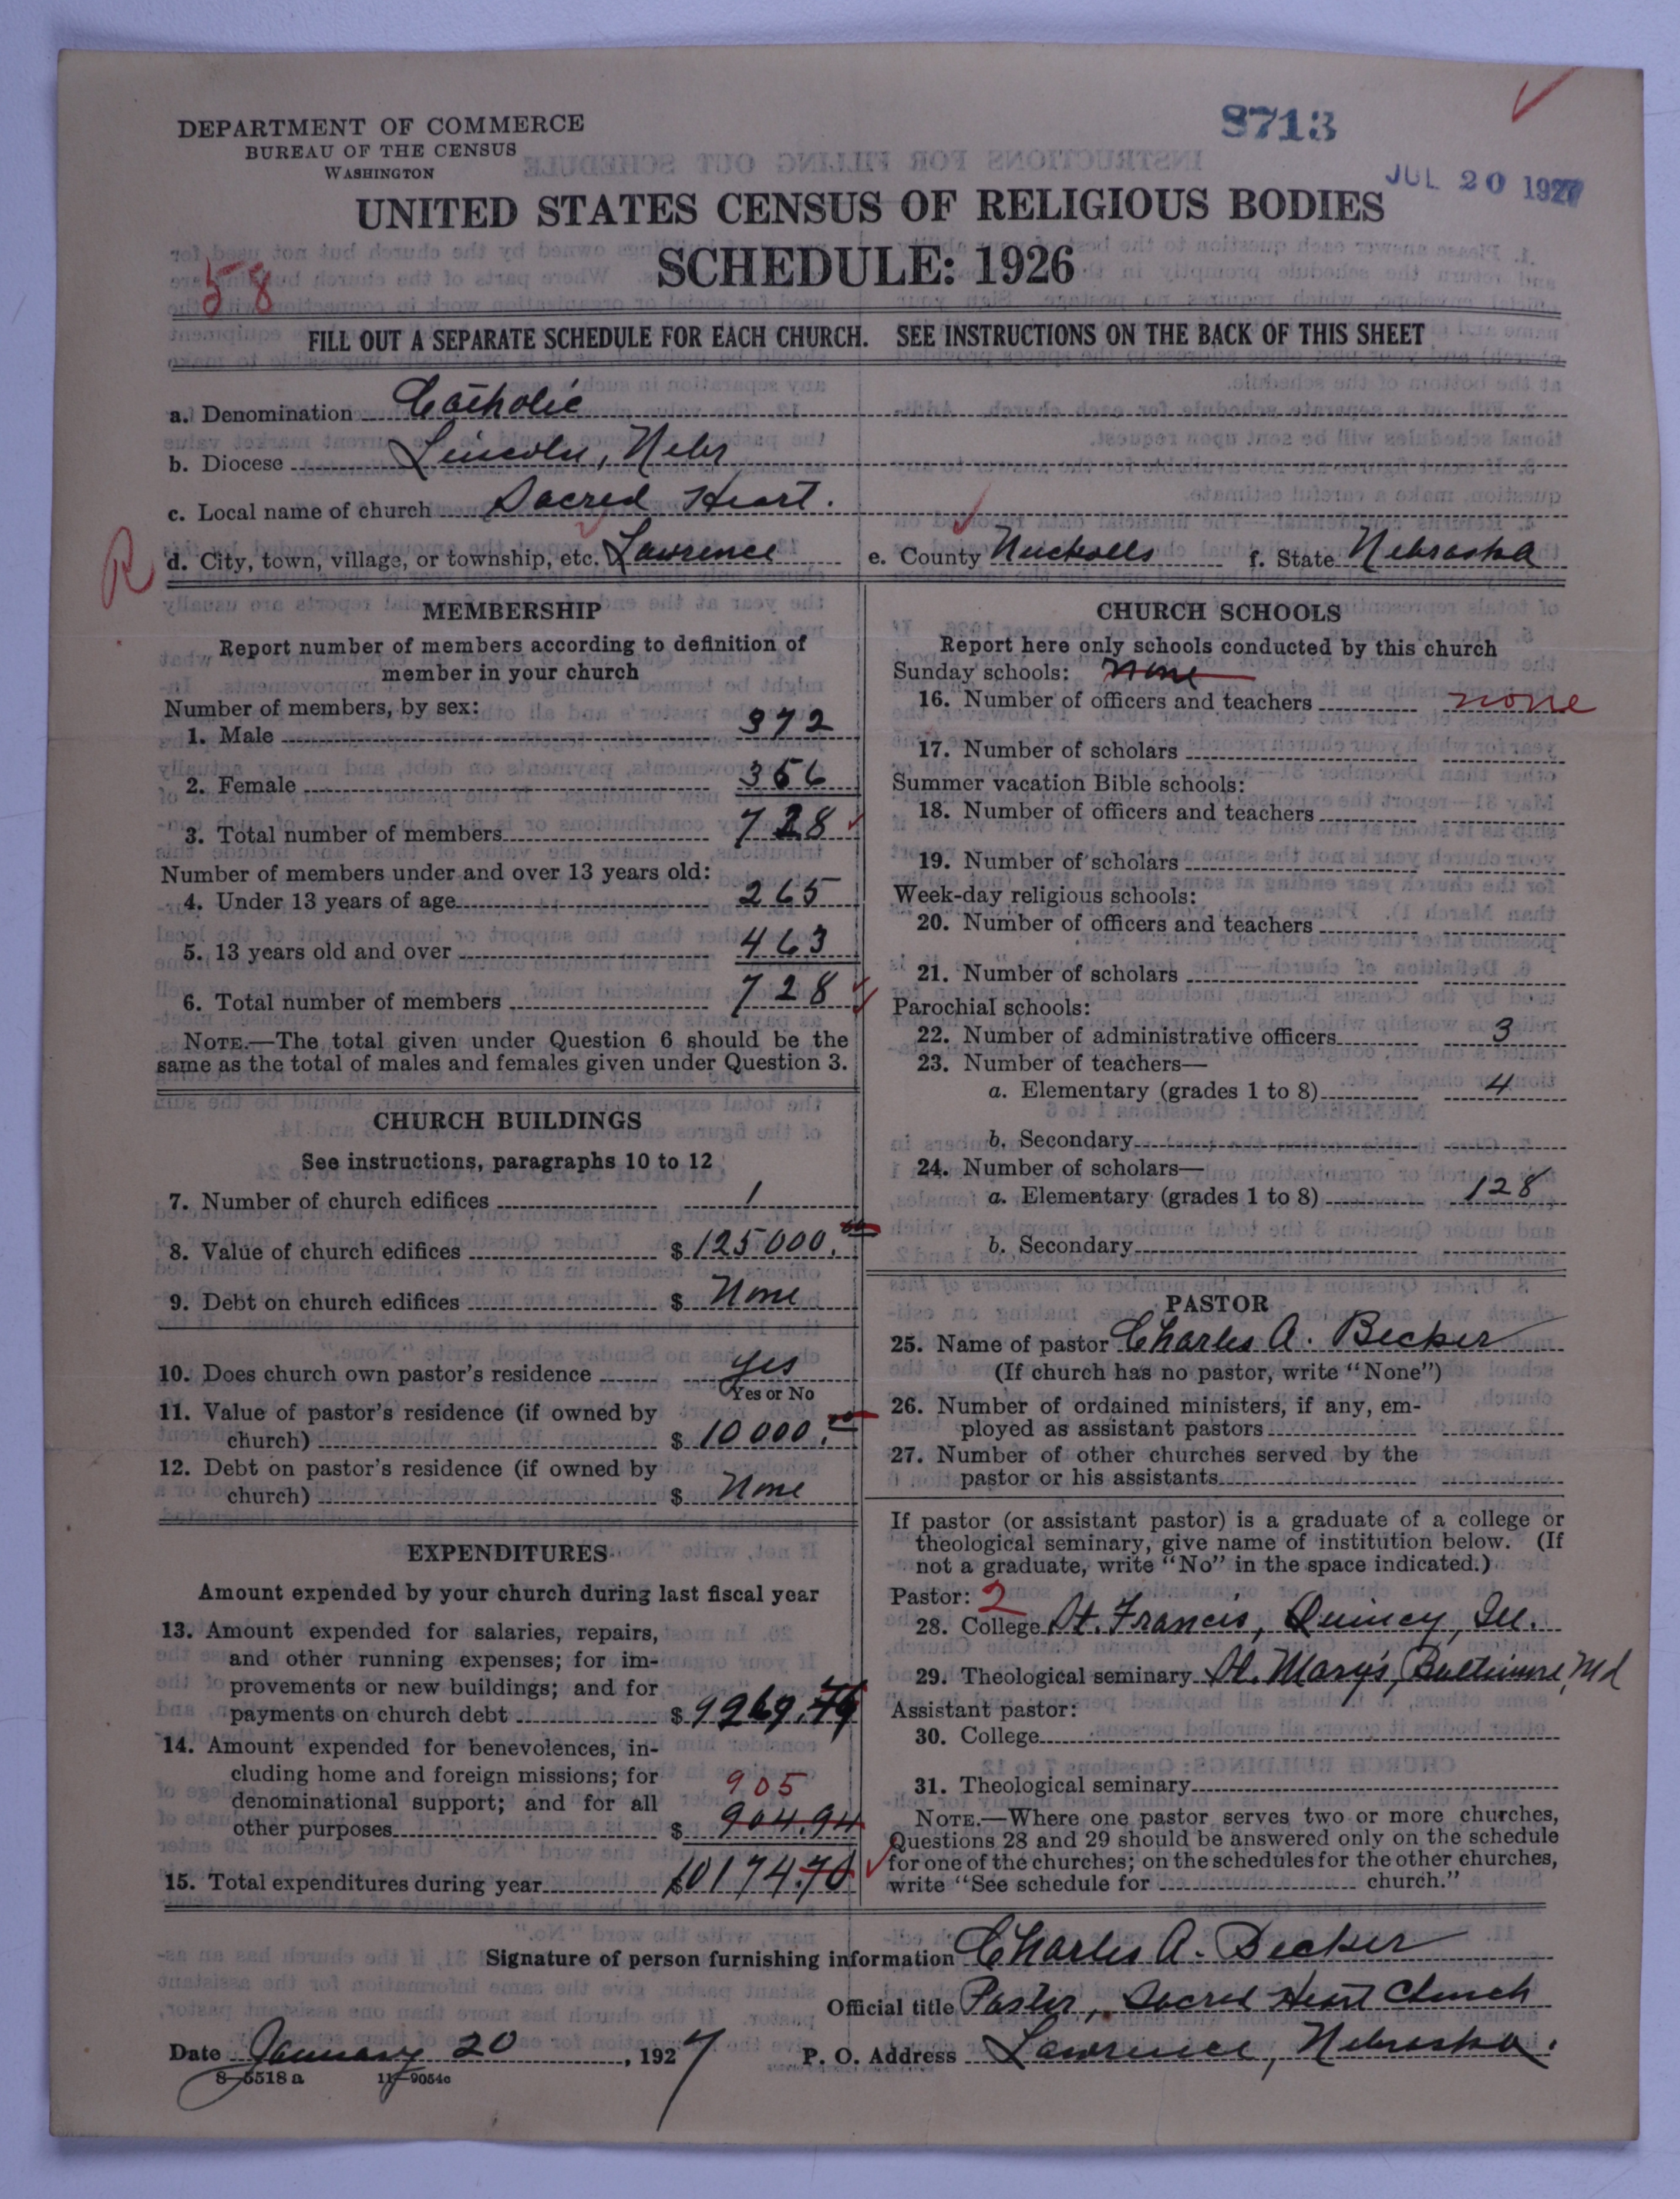 DEPARTMENT OF COMMERCE
BUREAU OF THE CENSUS
WASHINGTON
8713
JUL 20 1927
UNITED STATES CENSUS OF RELIGIOUS BODIES
SCHEDULE: 1926
58
FILL OUT A SEPARATE SCHEDULE FOR EACH CHURCH. SEE INSTRUCTIONS ON THE BACK OF THIS SHEET
a. Denomination Catholic
b. Diocese Lincoln, Nebr
c. Local name of church Sacred Heart.
R d. City, town, village, or township, etc. Lawrence e. County Nuckolls f. State Nebraska
MEMBERSHIP
Report number of members according to definition of
member in your church
Number of members, by sex:
1. Male 372
2. Female 356
3. Total number of members 728
Number of members under and over 13 years old:
4. Under 13 years of age 265
5. 13 years old and over 463
6. Total number of members 728
NOTE.—The total given under Question 6 should be the
same as the total of males and females given under Question 3.
CHURCH BUILDINGS
See instructions, paragraphs 10 to 12
7. Number of church edifices 1
8. Value of church edifices $125000.00
9. Debt on church edifices $ None
10. Does church own pastor's residence yes
Yes or No
11. Value of pastor's residence (if owned by
church) $10000.00
12. Debt on pastor's residence (if owned by
church) $ None
EXPENDITURES
Amount expended by your church during last fiscal year
13. Amount expended for salaries, repairs,
and other running expenses; for im-
provements or new buildings; and for
payments on church debt $9269.76
14. Amount expended for benevolences, in-
cluding home and foreign missions; for
denominational support; and for all 905
other purposes $904.94
15. Total expenditures during year $10174.70
CHURCH SCHOOLS
Report here only schools conducted by this church
Sunday schools: none
16. Number of officers and teachers none
17. Number of scholars
Summer vacation Bible schools:
18. Number of officers and teachers
19. Number of scholars
Week-day religious schools:
20. Number of officers and teachers
21. Number of scholars
Parochial schools:
22. Number of administrative officers 3
23. Number of teachers—
a. Elementary (grades 1 to 8) 4
b. Secondary
24. Number of scholars—
a. Elementary (grades 1 to 8) 128
b. Secondary
PASTOR
25. Name of pastor Charles A. Becker
(If church has no pastor, write "None")
26. Number of ordained ministers, if any, em-
ployed as assistant pastors
27. Number of other churches served by the
pastor or his assistants
If pastor (or assistant pastor) is a graduate of a college or
theological seminary, give name of institution below. (If
not a graduate, write "No" in the space indicated.)
Pastor: 2
28. College St. Francis, Quincy, Ill.
29. Theological seminary St. Mary's, Baltimore, Md
Assistant pastor:
30. College
31. Theological seminary
NOTE.—Where one pastor serves two or more churches,
Questions 28 and 29 should be answered only on the schedule
for one of the churches; on the schedules for the other churches,
write "See schedule for church."
Signature of person furnishing information Charles A. Becker
Official title Pastor, Sacred Heart Church
Date January 20, 1927 P. O. Address Lawrence, Nebraska.
8—5518 a 11—9054c